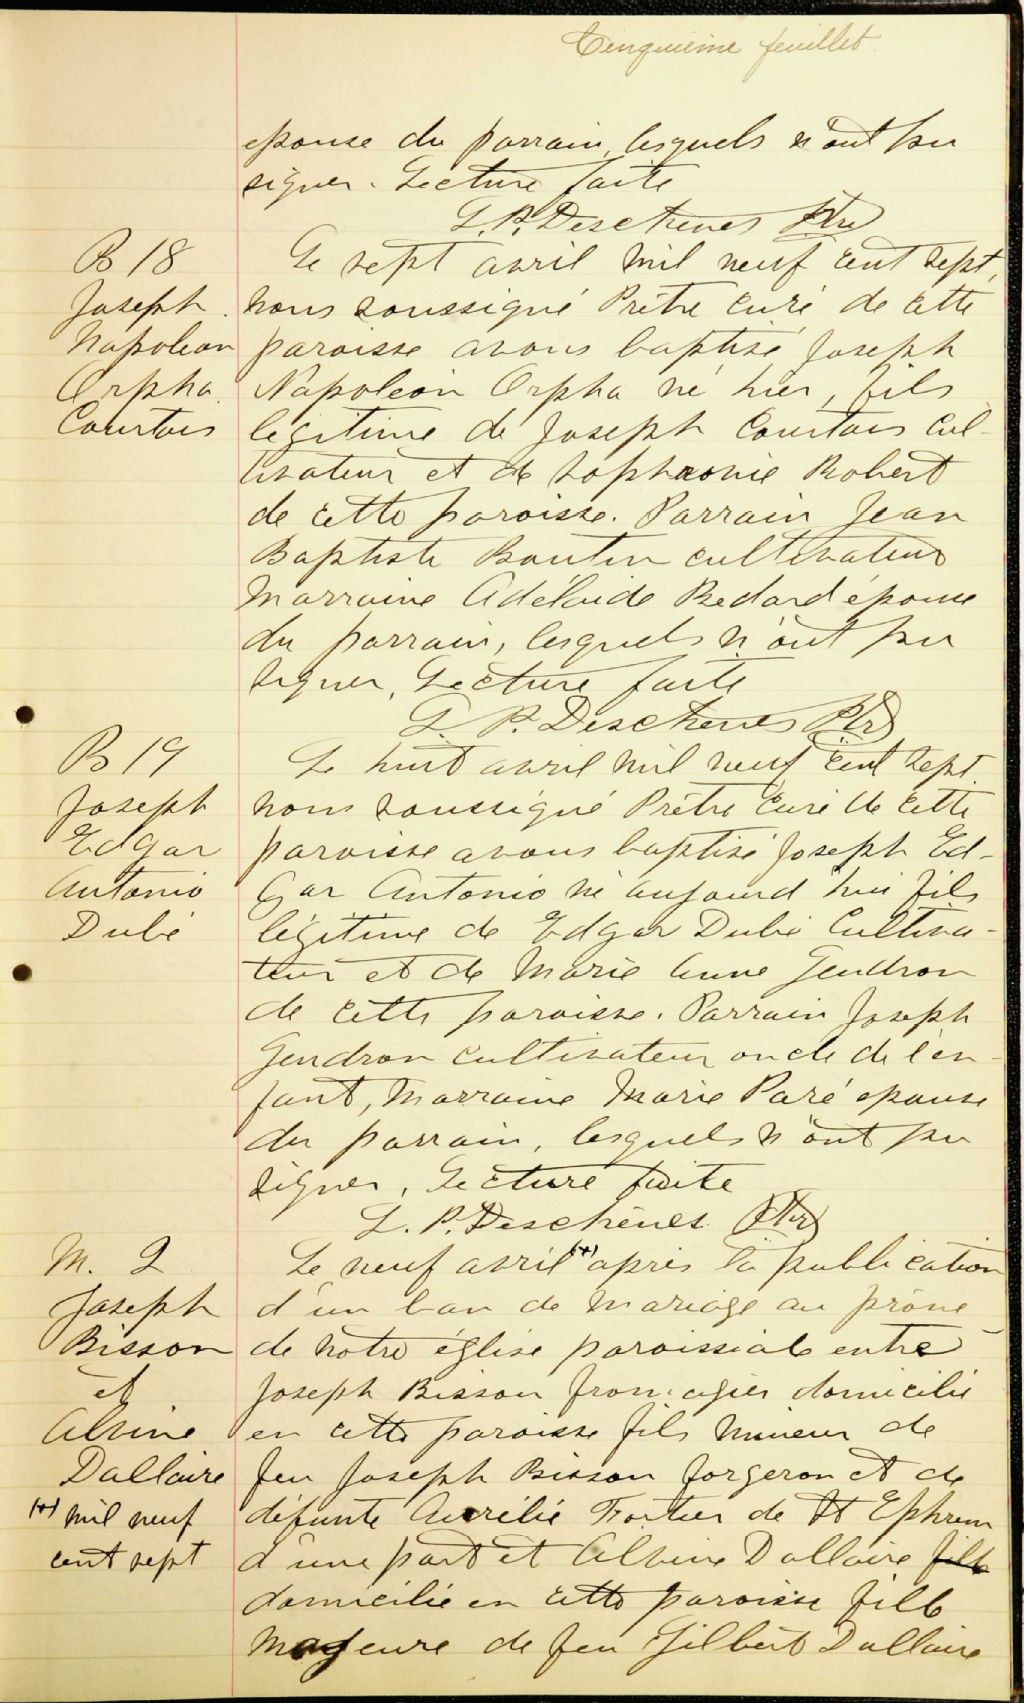 Cinquième feuillet.
epouse du parrain, lesquels n'ont pu
signer. Lecture faite
L. P. Deschenes Ptre
B 18
Joseph
Napoleon
Orpha
Courtois
Le sept avril mil neuf cent sept,
nous soussigné Prêtre curé de cette
paroisse avons baptisé Joseph
Napoleon Orpha né hier, fils
legitime de Joseph Courtois cul-
tivateur et de Sophronie Robert
de cette paroisse. Parrain Jean
Baptiste Boutin cultivateur
Marraine Adélaide Bedard épouse
du parrain, lesquels n'ont pu
signer, Lecture faite
L. P. Deschenes Ptr
B 19
Joseph
Edgar
Antonio
Dubé
Le huit avril mil neuf cent sept
nous soussigné Prêtre curé de cette
paroisse avons baptisé Joseph Ed-
gar Antonio né aujourd'hui fils
légitime de Edgar Dubé Cultiva-
teur et de Marie Anne Gendron
de cette paroisse. Parrain Joseph
Gendron cultivateur oncle de l'en-
fant, Marraine Marie Paré epouse
du parrain, lesquels n'ont pu
signer, Lecture faite
L. P. Deschênes Ptr
M. 2
Joseph
Bisson
et
Alvine
Dallaire
(+) mil neuf
cent sept
Le neuf avril (+) après la publication
d'un ban de mariage au prône
de notre église paroissiale entre
Joseph Bisson fromagier domicilié
en cette paroisse fils mineur de
feu Joseph Bisson forgeron et de
défunte Aurélie Fortier de St Ephrem
d'une part et Alvine Dallaire fille
domiciliée en cette paroisse fille
majeure de feu Gilbert Dallaire